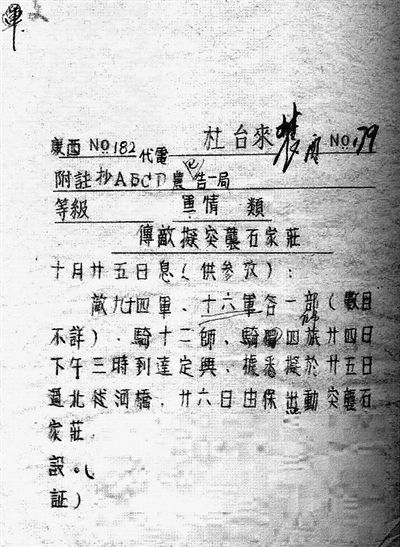 軍
廣西 NO 182 代電 杜台來 NO 179
附註抄ABCD 農 告一局
等級 軍情類
傳敵擬突襲石家莊
十月廿五日息(供參攷):
敵九十四軍、十六軍各一部(數目
不詳)、騎十二師、騎 四旅廿四日
下午三時到達定興、據悉擬於廿五日
逼北徐河橋、廿六日由保 動突襲石
家莊.
設
証)